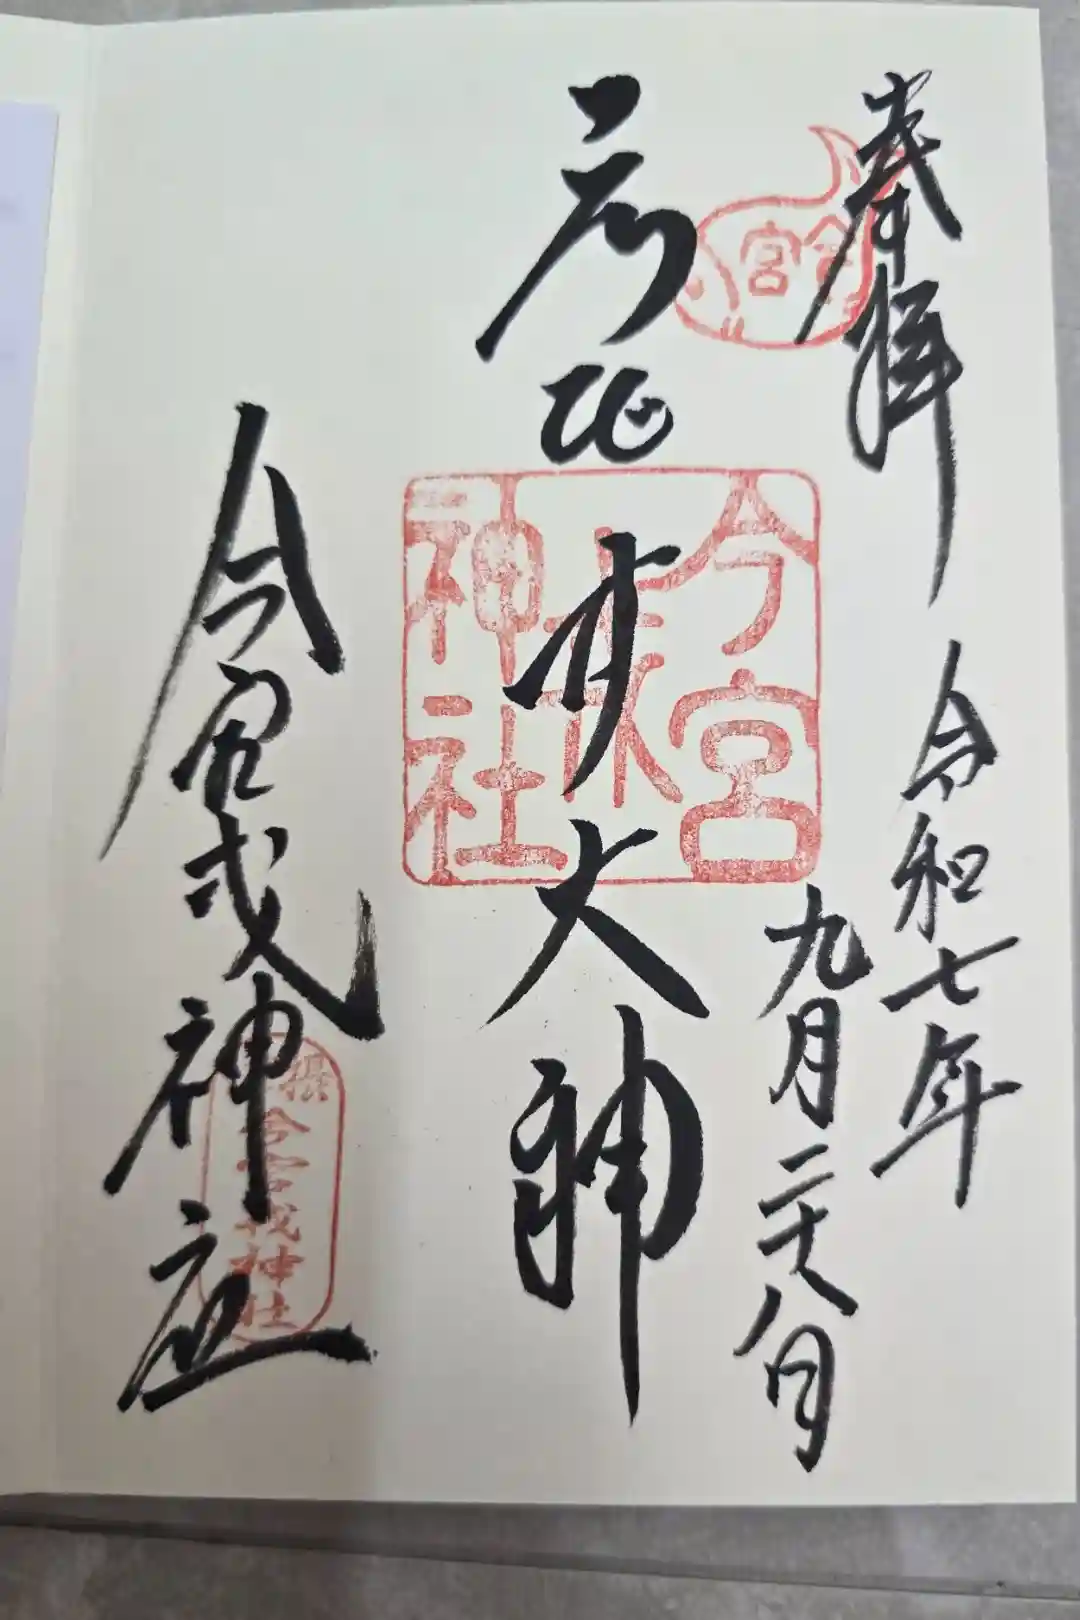 奉拝
今宮
令和七年
九月二十八日
大神
今宮
戎
神社
今宮戎神社
摂
今宮戎神社